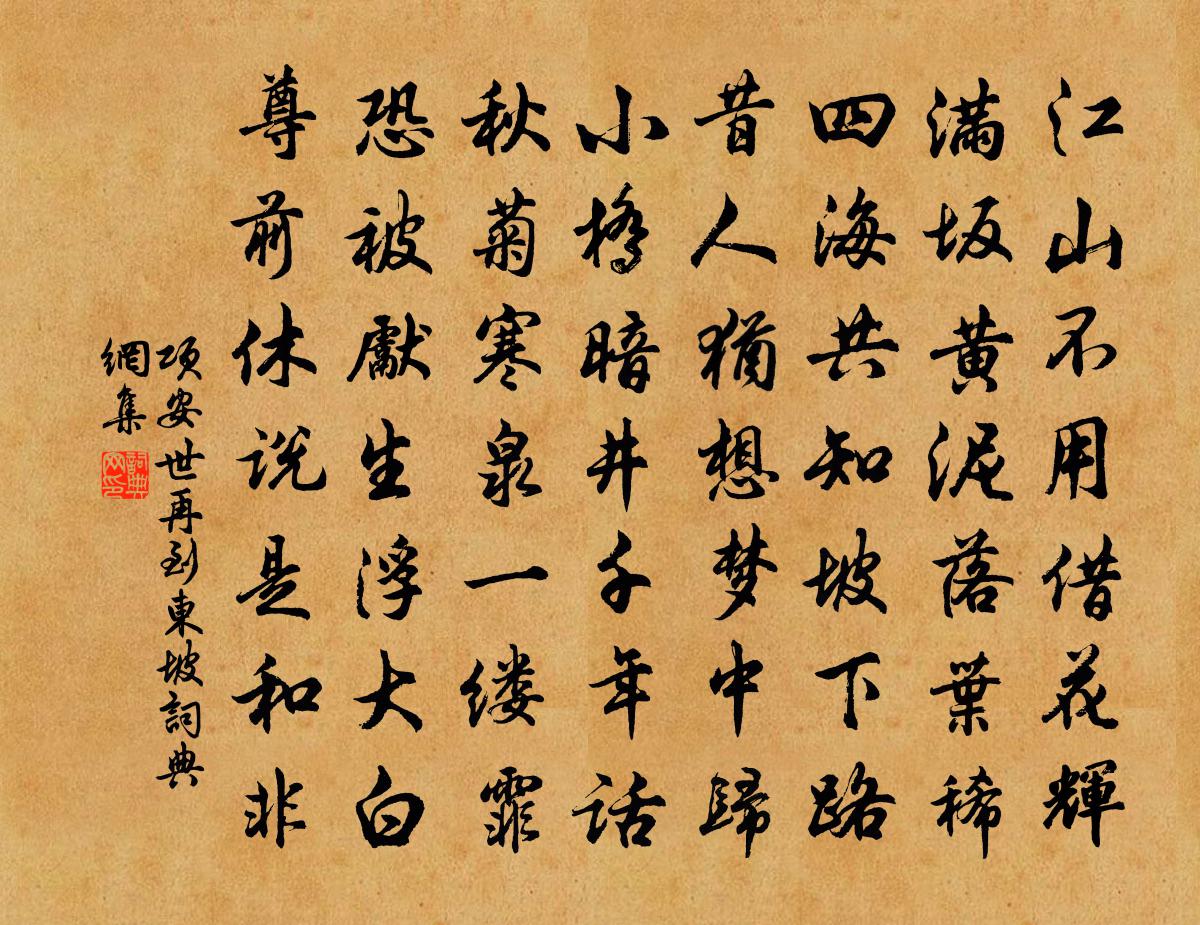 江山不用借花輝
满坂黄泥落葉稀
四海共知坡下路
昔人猶想梦中歸
小橋暗井千年話
秋菊寒泉一缕霏
恐被獻生浮大白
尊前休说是和非
項安世再到東坡詞典
網集
詞典
网印